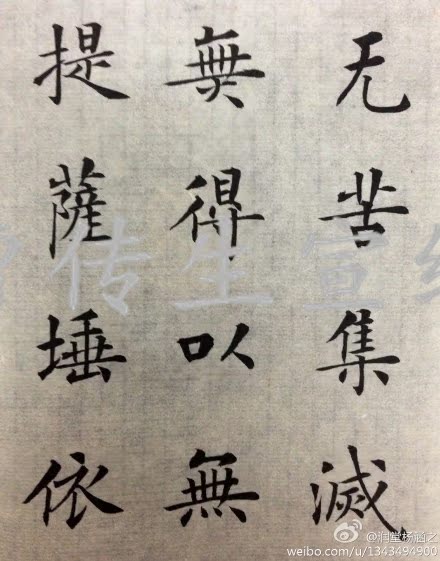 无苦集滅
無得以無
提薩埵依
传生宣
@润堂杨涵之
weibo.com/u/1343494900